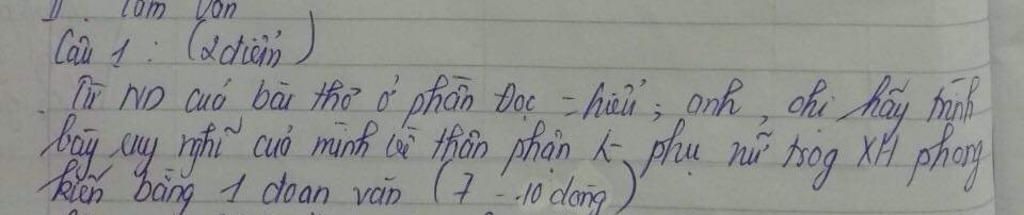 II. Làm văn
Câu 1 : (2 điểm)
Từ ND của bài thơ ở phần Đọc - hiểu ; anh, chị hãy trình
bày suy nghĩ của mình về thân phận phụ nữ trog XH phong
kiến bằng 1 đoạn văn (7 - 10 dòng)